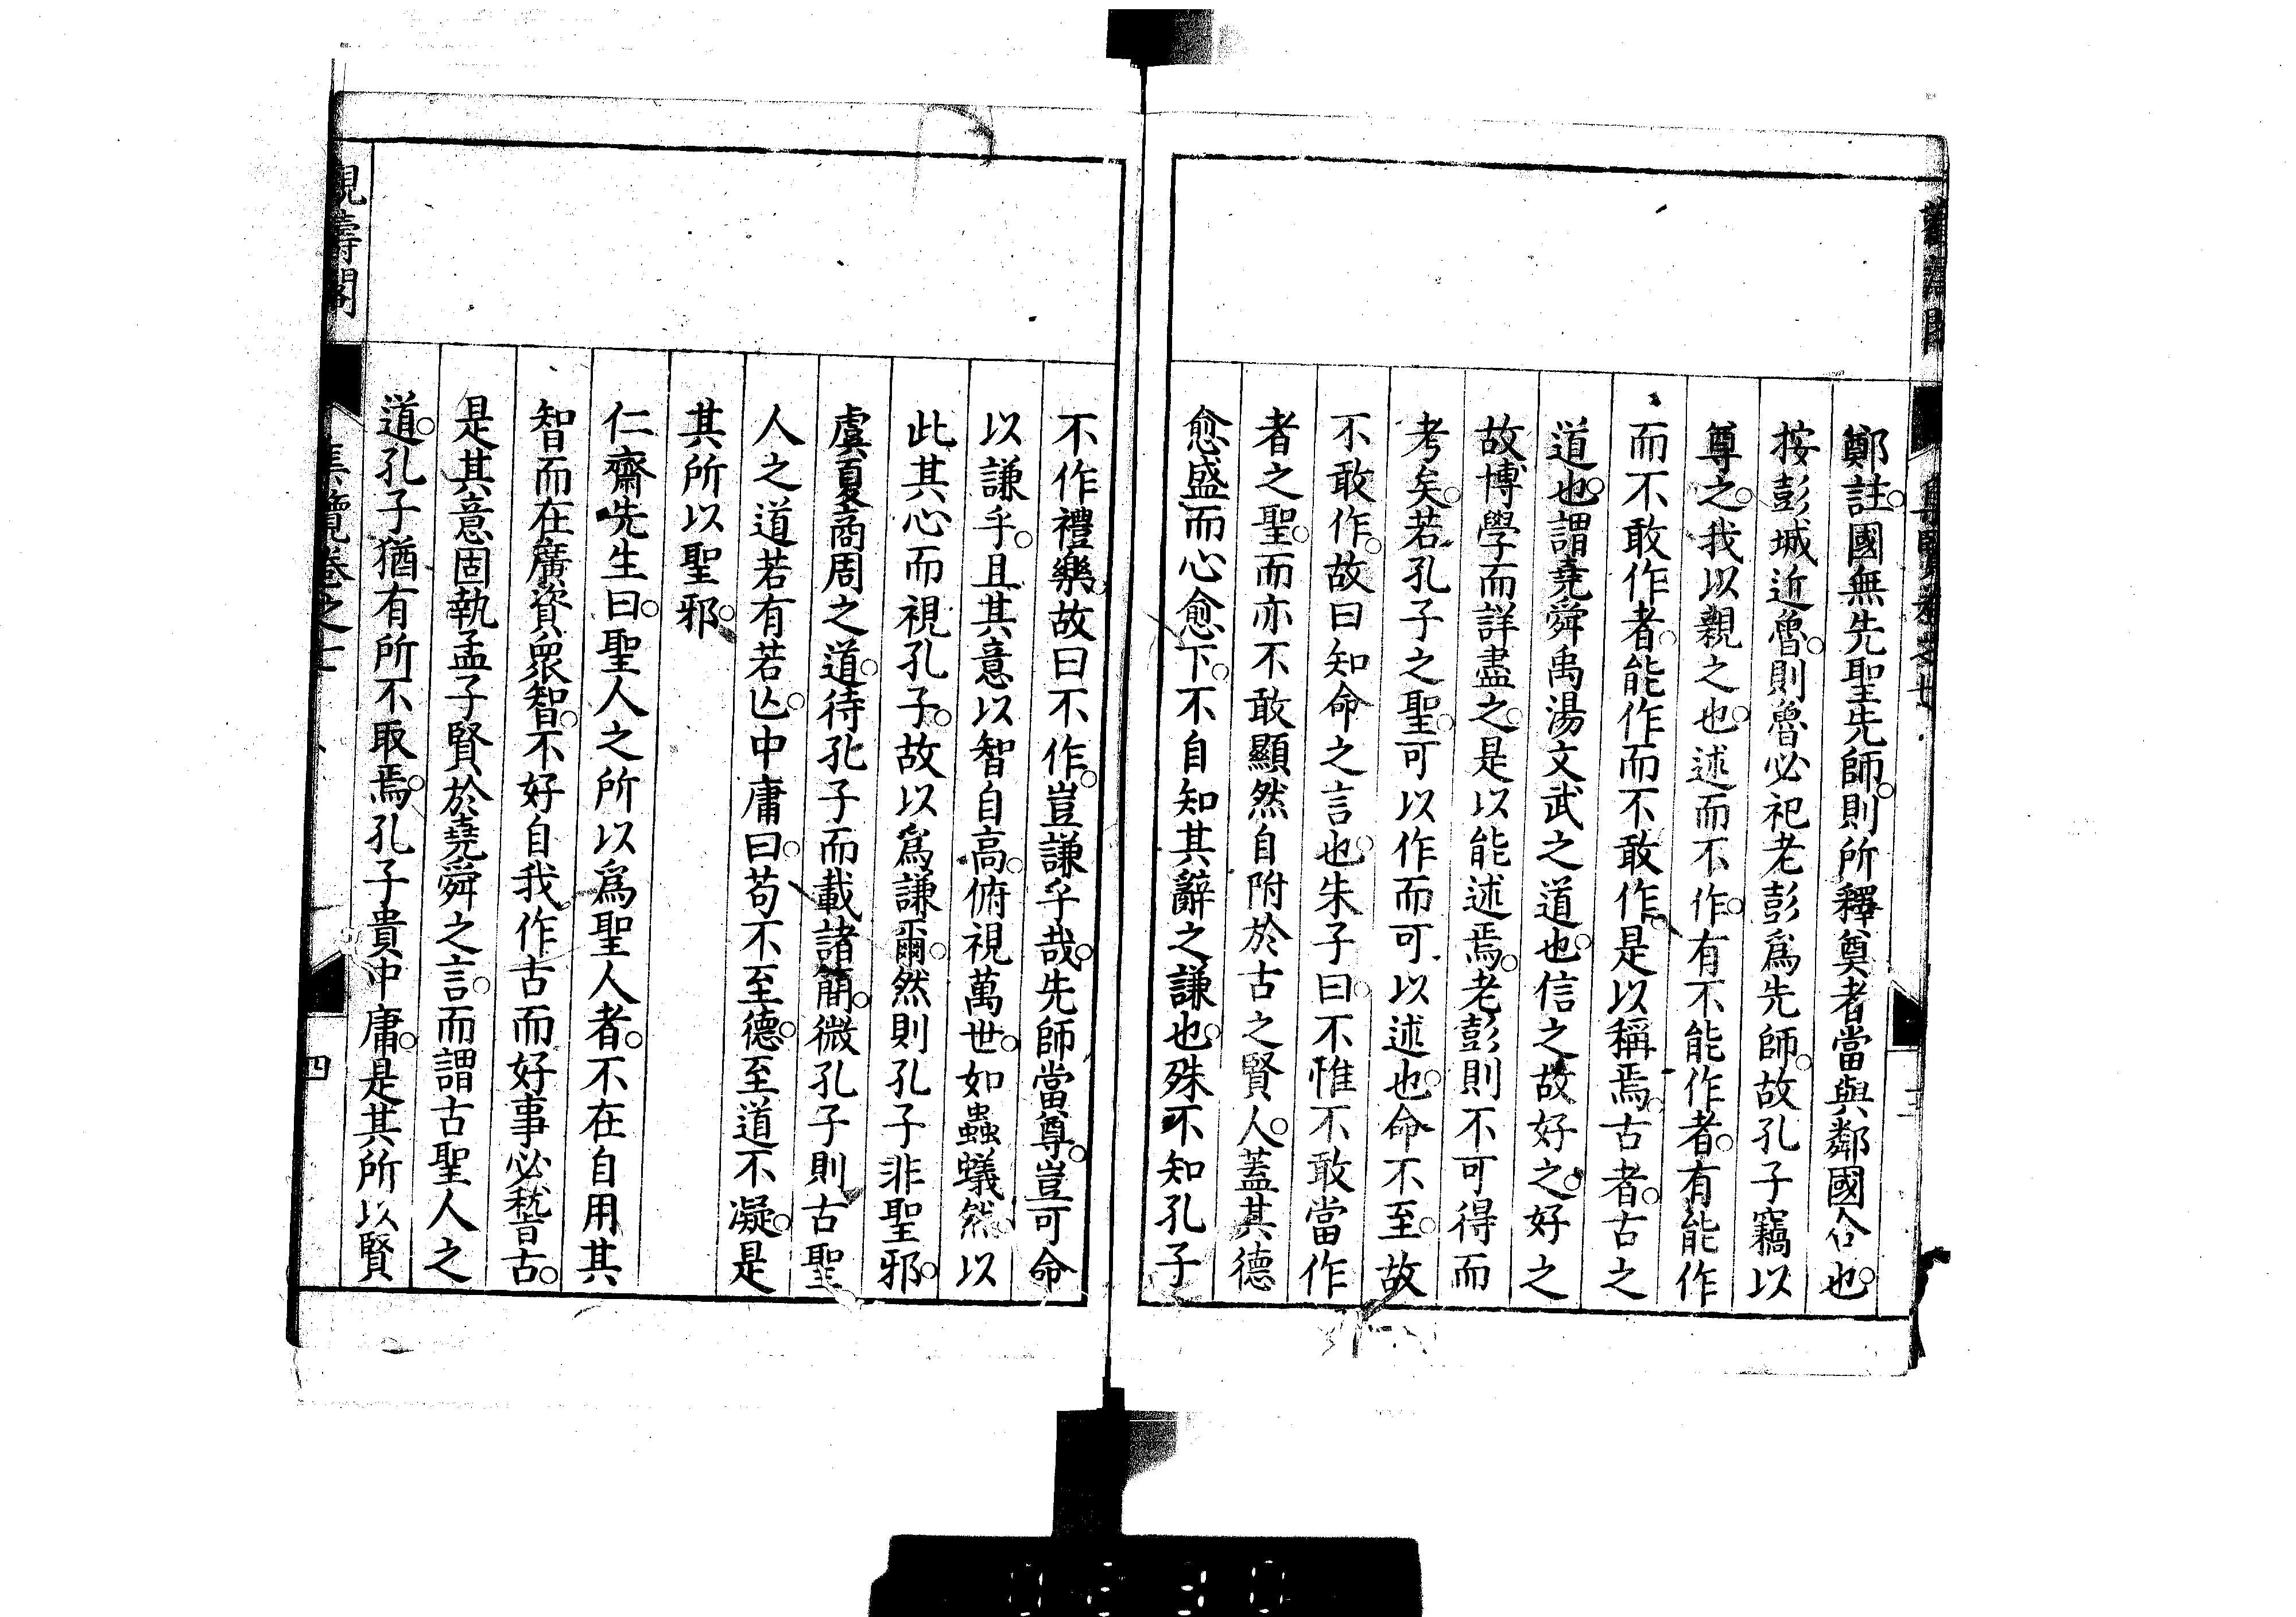 鄭註。國無先聖先師。則所釋奠者當與鄰國合也。
按彭城近魯。則魯必祀老彭爲先師。故孔子竊以
尊之。我以親之也。述而不作。有不能作者。有能作
而不敢作者。能作而不敢作。是以稱焉。古者。古之
道也。謂堯舜禹湯文武之道也。信之故好之。好之
故博學而詳盡之。是以能述焉。老彭則不可得而
考矣。若孔子之聖。可以作而可以述也。命不至。故
不敢作。故曰知命之言也。朱子曰。不惟不敢當作
者之聖。而亦不敢顯然自附於古之賢人。蓋其德
愈盛而心愈下。不自知其辭之謙也。殊不知孔子
不作禮樂。故曰不作。豈謙乎哉。先師當尊。豈可命
以謙乎。且其意以智自高。俯視萬世。如蟲蟻然。以
此其心而視孔子。故以爲謙爾。然則孔子非聖邪。
虞夏商周之道。待孔子而載諸簡。微孔子則古聖
人之道若有若亾。中庸曰。苟不至德。至道不凝。是
其所以聖邪。
仁齋先生曰。聖人之所以爲聖人者。不在自用其
智而在廣資衆智。不好自我作古而好事必稽古。
是其意固執孟子賢於堯舜之言。而謂古聖人之
道。孔子猶有所不取焉。孔子貴中庸。是其所以賢
四